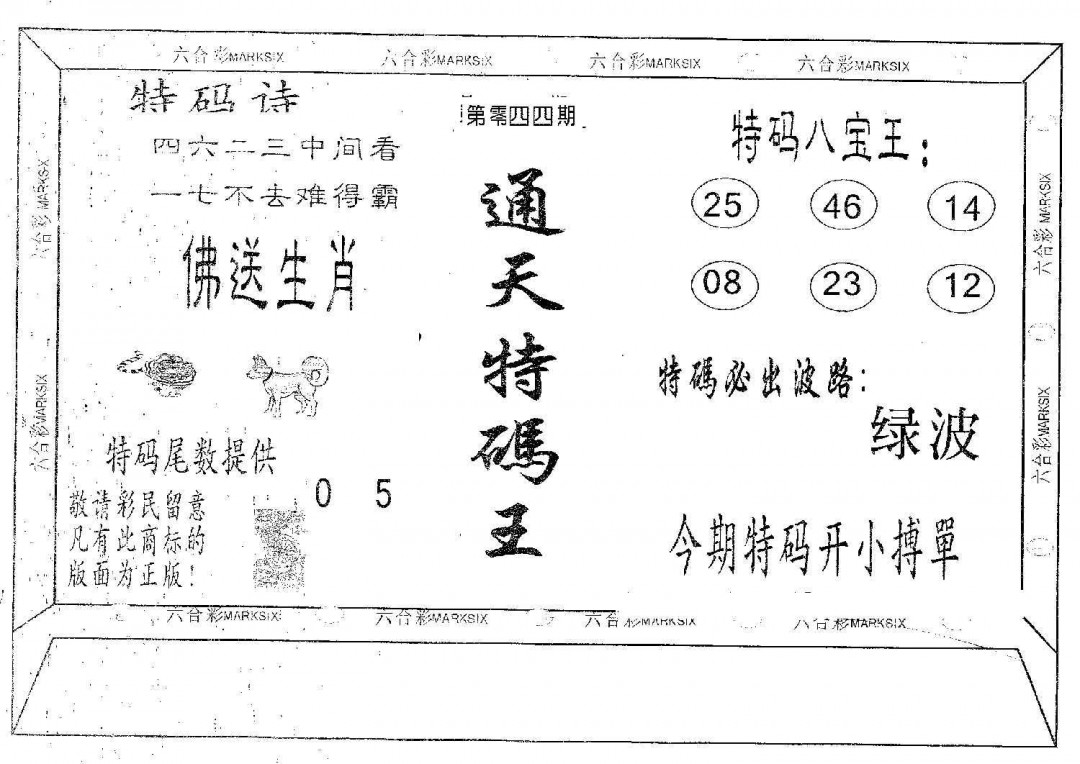 六合彩MARKSIX 六合彩MARKSIX 六合彩MARKSIX 六合彩MARKSIX
特码诗
四六二三中间看
一七不去难得霸
佛送生肖
特码尾数提供
0 5
敬请彩民留意
凡有此商标的
版面为正版!
第零四四期
通天特碼王
特码八宝王:
25 46 14
08 23 12
特碼必出波路:
绿波
今期特码开小搏單
六合彩MARKSIX
六合彩MARKSIX
六合彩MARKSIX
六合彩MARKSIX
六合彩MARKSIX 六合彩MARKSIX 六合彩MARKSIX 六合彩MARKSIX